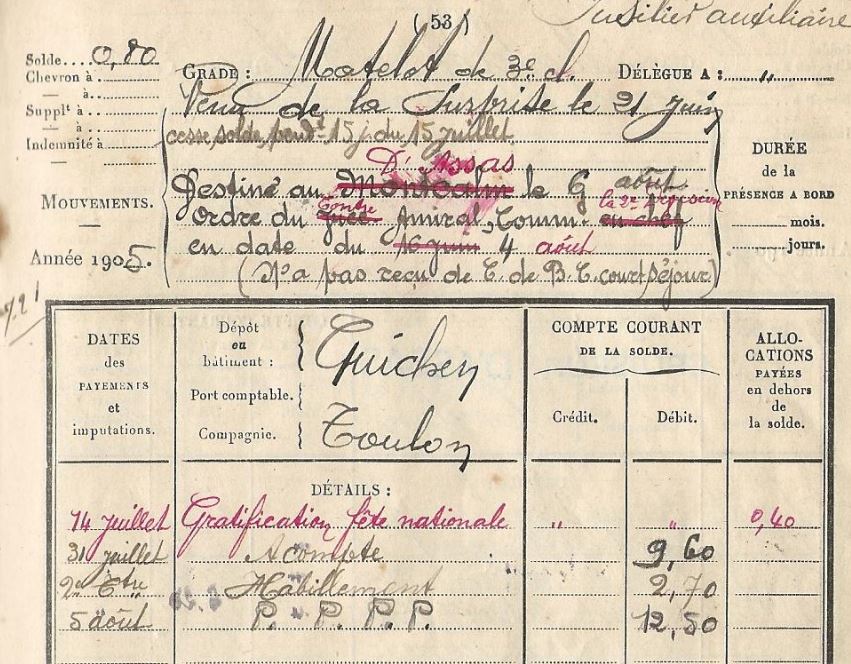 (53)
Fusilier auxiliaire
Solde.... 0,80
Chevron à
à
Supplt à
à
Indemnité à
GRADE : Matelot de 3e cl. DÉLÈGUE A : "
Venu de la Surprise le 21 juin
cesse solde pendt 15 j. du 15 juillet
D'Assas
MOUVEMENTS.
Destiné au Montcalm le 6 août
Ordre du Vice Contre Amiral, Comm. en chef la 2e
en date du 16 juin 4 août
Année 1905.
(N'a pas reçu de C. de B. C. court séjour)
DURÉE
de la
PRÉSENCE A BORD
mois.
jours.
DATES
des
PAYEMENTS
et
imputations.
Dépôt
ou
bâtiment :
Port comptable.
Compagnie.
Guichen
Toulon
COMPTE COURANT
DE LA SOLDE.
Crédit.
Débit.
ALLO-
CATIONS
PAYÉES
en dehors
de
la solde.
DÉTAILS :
14 juillet Gratification fête nationale " " 0,40
31 juillet Acompte 9,60
2e Ctre Habillement 2,70
5 août P. P. P. P. 12,50